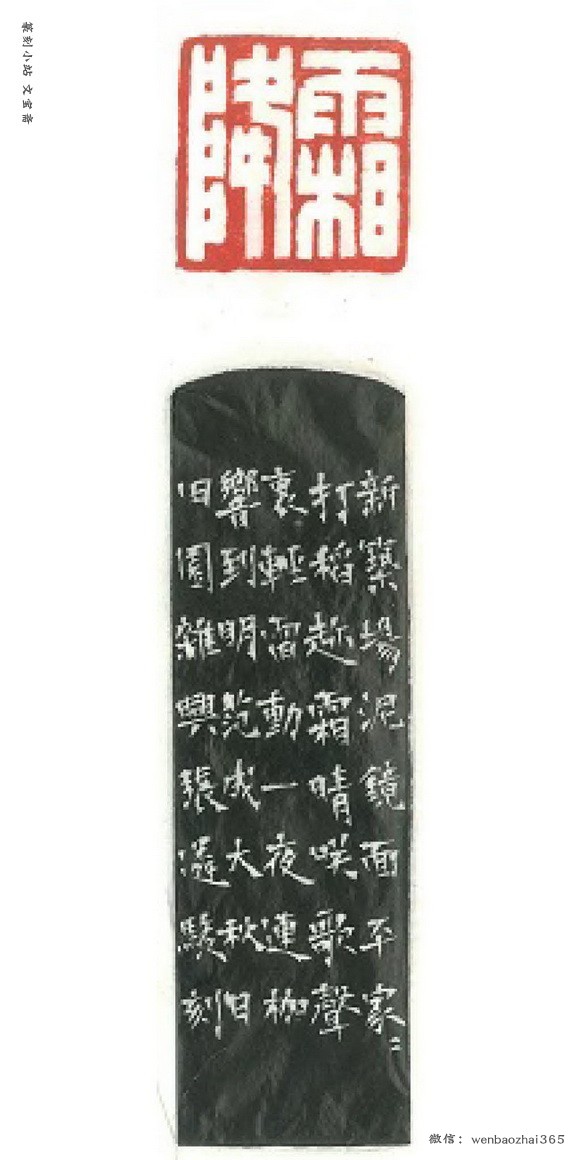 篆刻小站 文宝斋
霜降
新築場泥鏡面平家〻
打稻趂霜晴咲歌聲
裏輕雷動一夜連枷
響到明范成大秋日
田園雜興張運駿刻
微信：wenbaozhai365